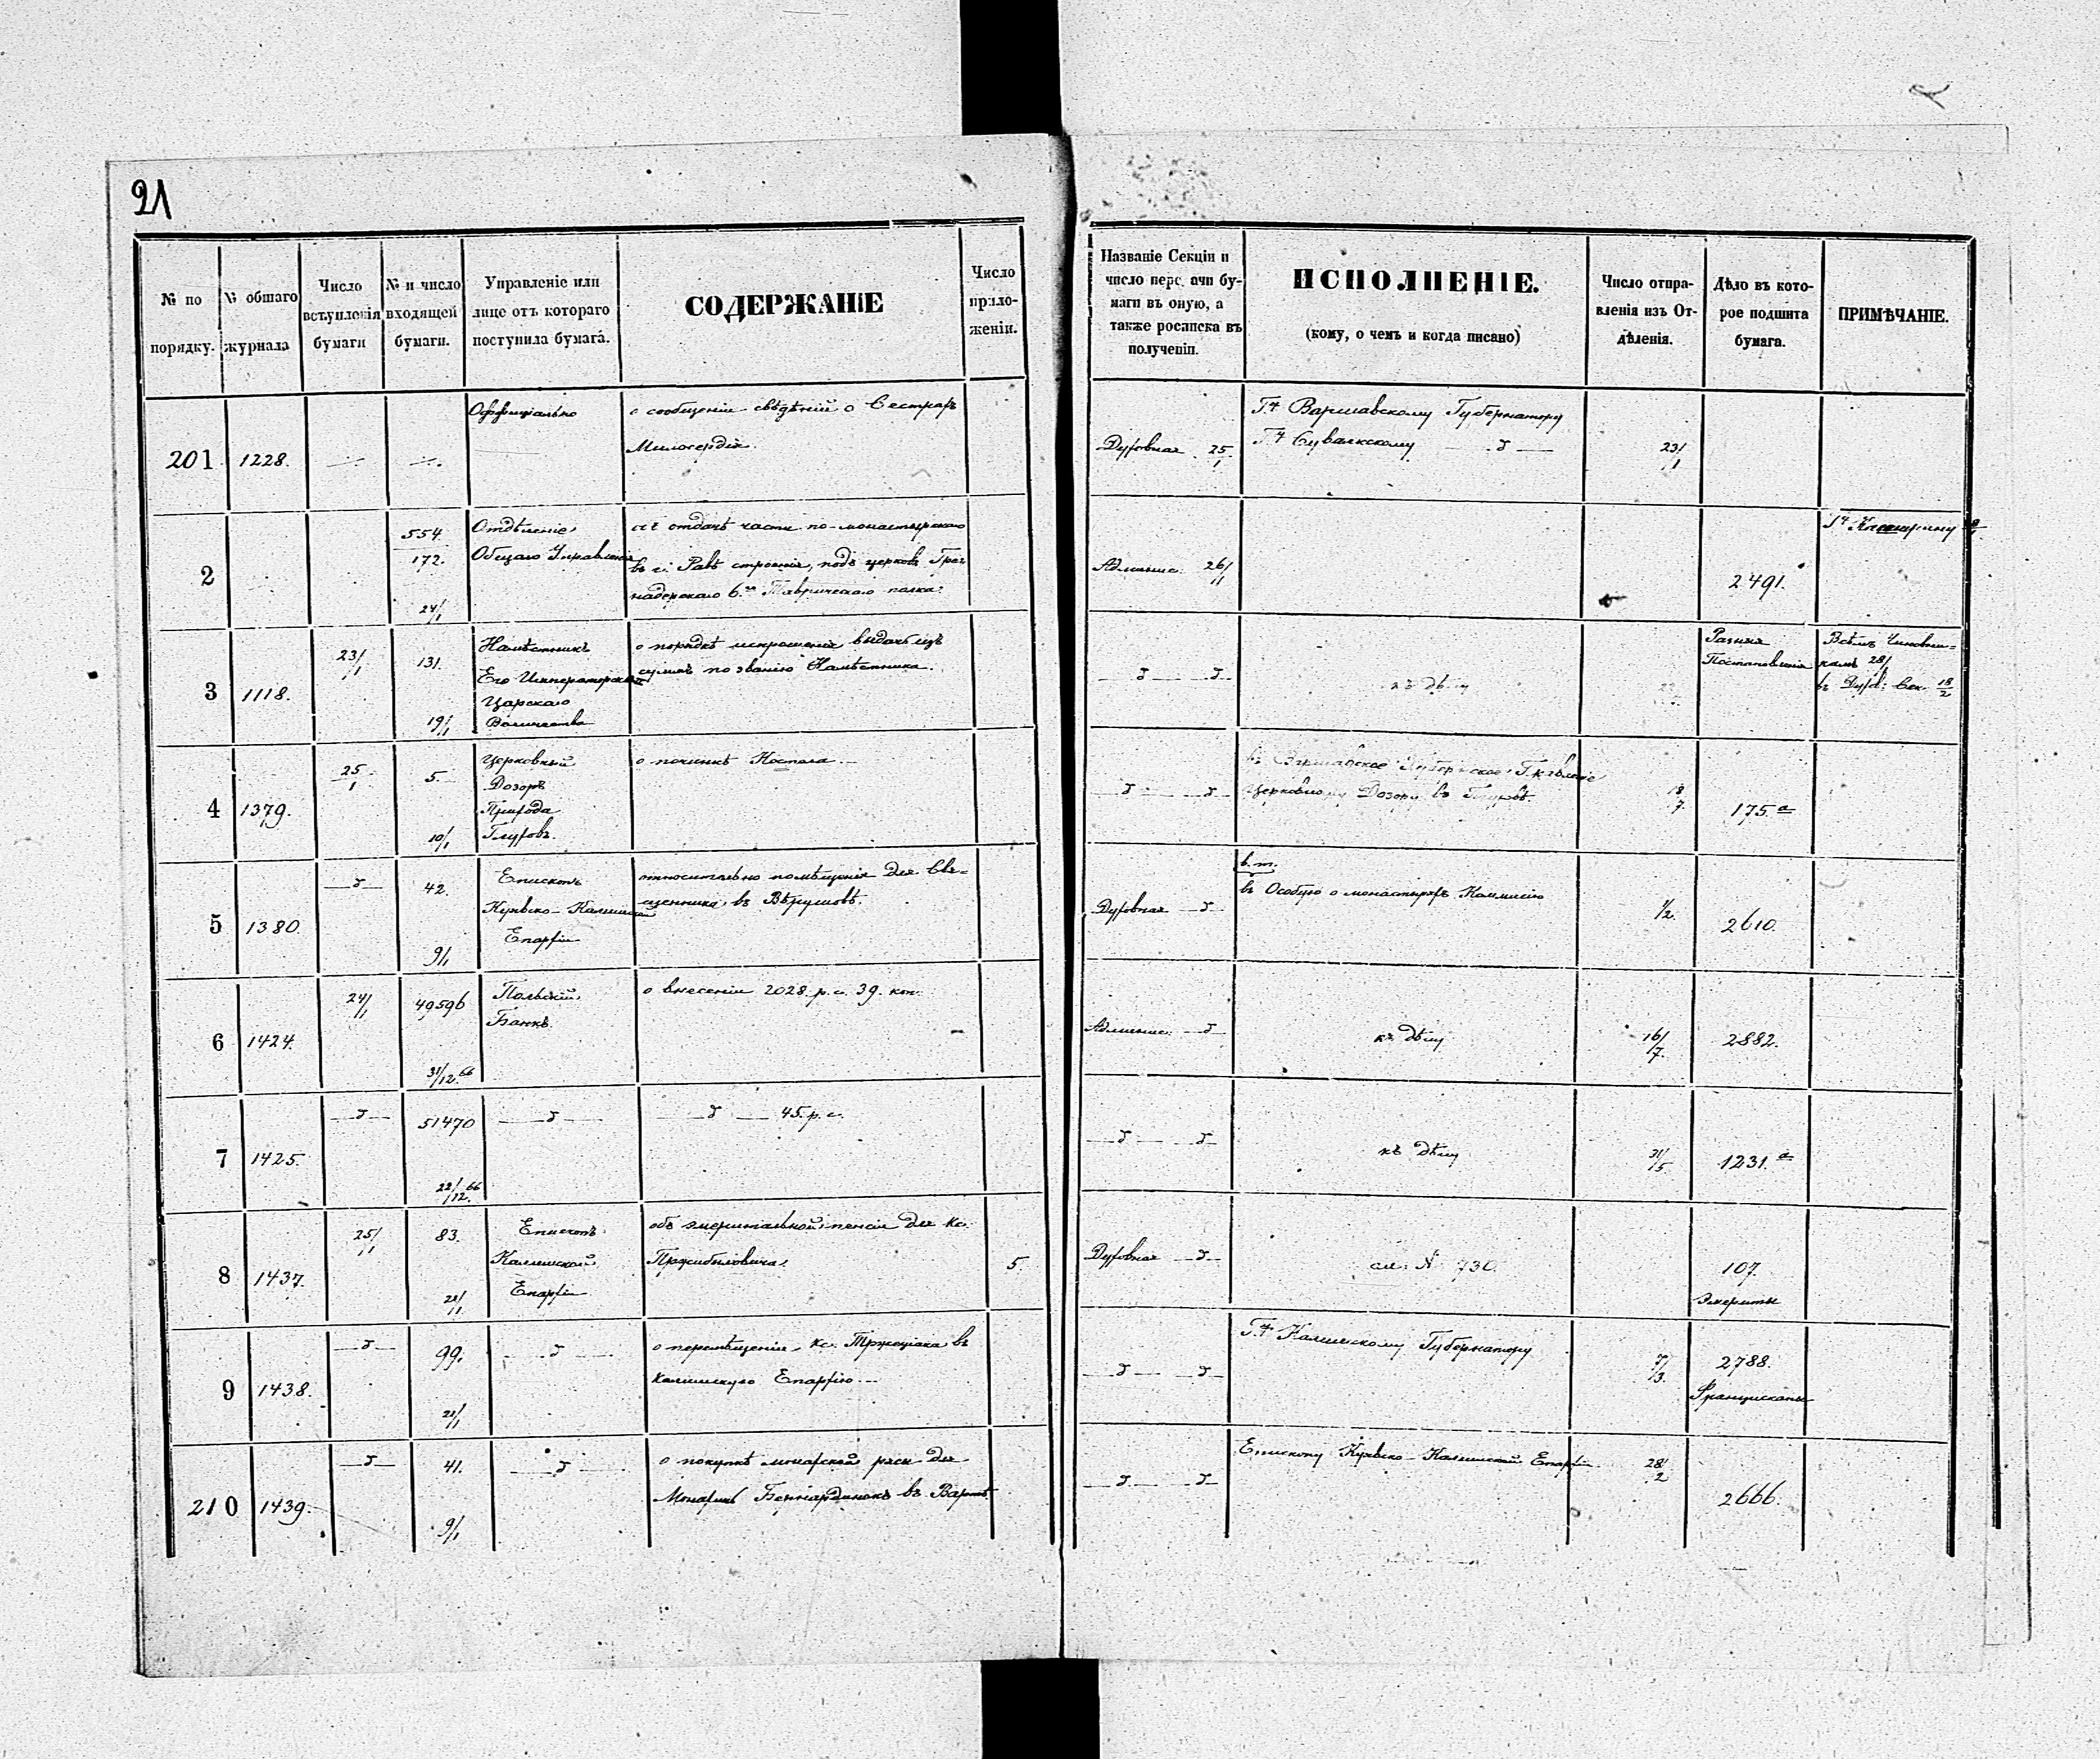 21
№ по порядку.
№ общаго журнала
Число вступленія бумаги
№ и число входящей бумаги.
Управленіе или лице отъ котораго поступила бумага.
СОДЕРЖАНІЕ
Число приложеніи.
Названіе Секціи и число перед ачи бумаги въ оную, а также росписка въ полученіи.
ИСПОЛНЕНІЕ.
(кому, о чемъ и когда писано)
Число отправленія изъ Отдѣленія.
Дѣло въ которое подшита бумага.
ПРИМѢЧАНІЕ.
201 1228.
Оффиціально
о сообщеніи свѣдѣній о Сестрахъ
Милосердія.
Духовная 25/1
Г. Варшавскому Губернатору
Г. Сувалкскому
23/1
2
554
172.
24/1
Отдѣленіе
Общаго Управленія
отдачѣ части по-монастырскаго
въ г. Равѣ строенія, подъ церковь Гре-
надерскаго 6. Таврическаго полка.
Админис. 26/1
2491.
3 1118.
23/1
131.
19/1
Намѣстникъ
Его Императорско
Царскаго
Величества
о порядкѣ испрошенія выдачь изъ
суммъ по званію Намѣстника.
къ дѣлу
Разныя
Постановленія
Всѣмъ Чиновни-
камъ 28/1
въ Дух. Сек. 18/2
4 1379.
25/1
5.
10/1
Церковный
Дозоръ
Прихода
Глуховъ.
о починкѣ Костела
въ Варшавское Губернское Правленіе
Церковному Дозору въ Глуховѣ.
18/7.
175.а
5 1380.
42.
9/1
Епископъ
Куявско-Калишской
Епархіи
относительно помѣщенія для Свя-
щенника въ Вѣрушовѣ.
Духовная
в. т.
въ Особую о монастыряхъ Коммисію
1/2.
2610.
6 1424.
24/1
49596
31/12.66
Польскій
Банкъ.
о внесеніи 2028. р. с. 39. коп.
Админис.
къ дѣлу
16/7.
2882.
7 1425.
51470
22/12.66
45. р. с.
къ дѣлу
31/5
1231.а
8 1437.
25/1
83.
21/1
Епископъ
Калишской
Епархіи
объ эмеритальной пенсіи для Кс.
Пржибыловича.
5.
Духовная
см. № 730.
107.
Эмериты
9 1438.
99.
21/1
о перемѣщеніи Кс. Тржеціака въ
Калишскую Епархію
Г. Калишскому Губернатору
7/3.
2788.
Францискане
210 1439.
41.
9/1
о покупкѣ монарской рясы для
Монахинь Бернардинокъ въ Вартѣ.
Епископу Куявско-Калишской Епархіи
28/2
2666.